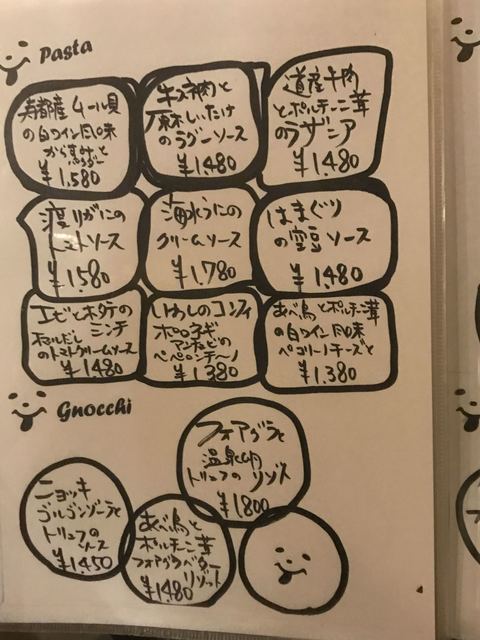 Pasta
寿都産ムール貝
の白ワイン風味
からすみと
¥1.580
牛スネ肉と
原木しいたけ
のラグーソース
¥1.480
道産牛肉
とポルチーニ茸
のラザニア
¥1.480
渡りがにの
トマトソース
¥1580
海水うにの
クリームソース
¥1.780
はまぐり
の空豆ソース
¥1.480
エビとホタテの
ミンチ
のトマトクリームソース
¥1480
いわしのコンフィ
ポロネギ
アンチョビの
ペペロンチーノ
¥1.380
あべ鳥とポルチーニ茸
の白ワイン風味
ペコリーノチーズと
¥1.380
Gnocchi
フォアグラと
温泉卵
トリュフのリゾット
¥1800
ニョッキ
ゴルゴンゾーラと
トリュフの
ソース
¥1450
あべ鳥と
ポルチーニ茸
フォアグラバター
リゾット
¥1480